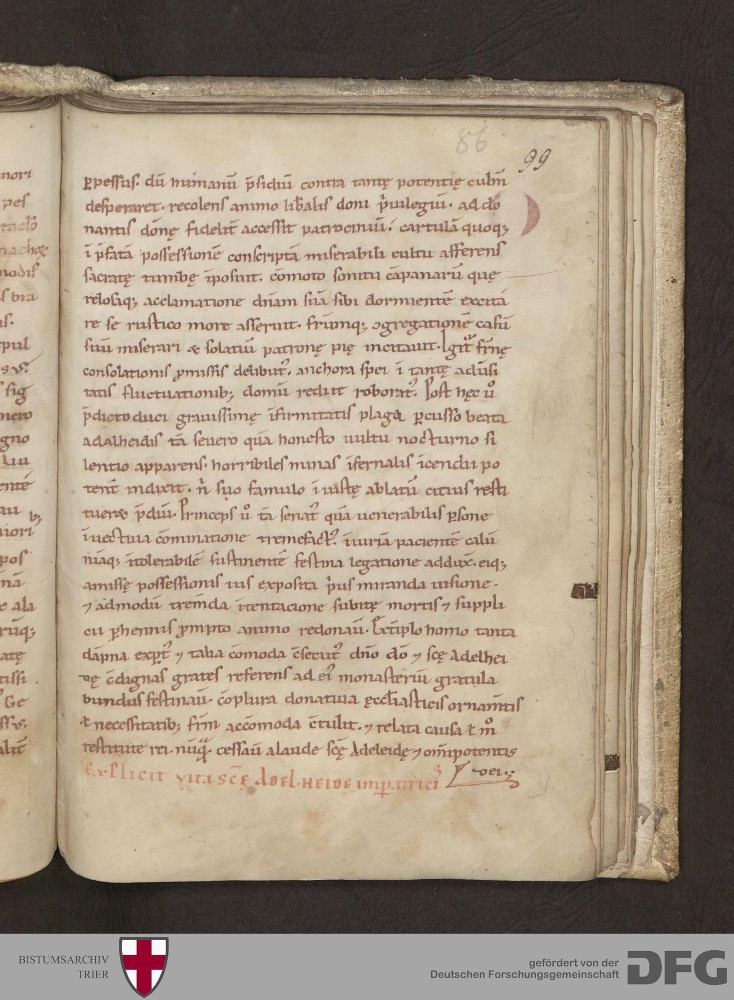 nori
pes
modis
s bra
pul
sig
gno
ente
au
uiori
pos
nā
e ala
rūq;
tissi
Ge
86
99
ꝑpessus. dū humanū p̄sidiū contra tantę potentię culm̄
desperaret. recolens animo lib̄alis doni p̄uilegiū. ad do
nantis donę fidelit̄ accessit patrociniū. cartulā quoq;
ī p̄fatā possessionē conscriptā miserabili cultu afferens
sacratę tumbę īposuit. cōmoto sonitu cāpanarū quę
relosaq; acclamatione dn̄am suā sibi dormientē excitā
re se rustico more asseruit. frm̄q; ꝯgregationē casū
suū miserari & solatiū patronę pię incitauit. Igit᷑ frn̄ę
consolationis ꝓmissis delibut᷒. anchora spei ī tantę adūsi
tatis fluctuationib; domū rediit roborat᷒. Post hęc u̾
p̄dicto duci grauissimę īfirmitatis plaga ꝑcusso beata
adalheidis tā seuero quā honesto uultu nocturno si
lentio apparens. horribiles minas īfernalis īcendii po
tent̄ indixit. n̄ suo famulo īiustę ablatū citius resti
tueret p̄diū. Princeps u̾ tā senat᷒ quā uenerabilis ꝑsone
īuectiua cōminatione tremefact᷒. īiuriā pacientē calū
niāq; ītolerabilē sustinentē festina legatione addux̄. eiq;
amissę possessionis ius exposita p̄us miranda uisione.
⁊ admodū trem̄da ītentacione subitę mortis ⁊ suppli
cii ꝑhennis ꝓmpto animo redonau̅. Extēplo homo tanta
dāpna exꝑt᷒ ⁊ talia cōmoda c̄secut᷒ dn̄o do̅ ⁊ scę Adelhei
dę c̄dignas grates referens ad ei᷒ monasteriū gratula
bundus festinau̅. cōplura donatiua eccl̄iasticis ornam̄tis
⁊ necessitatib; frm̄ accōmoda c̄tulit. ⁊ relata causa ⁊ m̊
restitute rei. nūq̄ cessau̅ a laude scę Adeleidę ⁊ om̄ipotentis
dei.
Explicit vita scę Adelheidę imperatricis
BISTUMSARCHIV
TRIER
gefördert von der
Deutschen Forschungsgemeinschaft
DFG